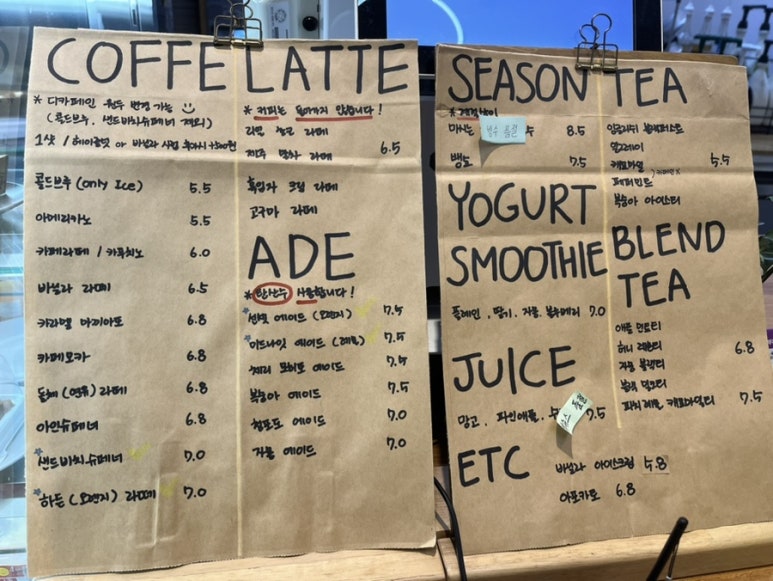 COFFE
* 디카페인 원두 변경 가능
(콜드브루, 샌드비치슈페너 제외)
1샷 / 헤이즐넛 or 바닐라 시럽 추가시 +500원
콜드브루 (only Ice) 5.5
아메리카노 5.5
카페라떼 / 카푸치노 6.0
바닐라 라떼 6.5
카라멜 마끼아또 6.8
카페모카 6.8
돌체 (연유) 라떼 6.8
아인슈페너 6.8
*샌드비치슈페너 7.0
*하든 (오렌지) 라떼 7.0
LATTE
* 커피는 들어가지 않습니다!
리얼 초코 라떼
제주 말차 라떼 6.5
흑임자 크림 라떼
고구마 라떼
ADE
* 탄산수 사용합니다!
*선셋 에이드 (오렌지) 7.5
*미드나잇 에이드 (레몬) 7.5
체리 모히또 에이드 7.5
복숭아 에이드 7.5
청포도 에이드 7.0
자몽 에이드 7.0
SEASON
* 계절
8.5
뱅쇼 7.5
YOGURT
SMOOTHIE
플레인, 딸기, 자몽, 블루베리 7.0
JUICE
망고, 파인애플, 7.5
ETC
바닐라 아이스크림 5.8
아포카토 6.8
TEA
잉글리쉬 블랙퍼스트
얼그레이
캐모마일 5.5
페퍼민트
복숭아 아이스티
BLEND
TEA
애플
허니
자몽 블랙티 6.8
캐모마일티 7.5